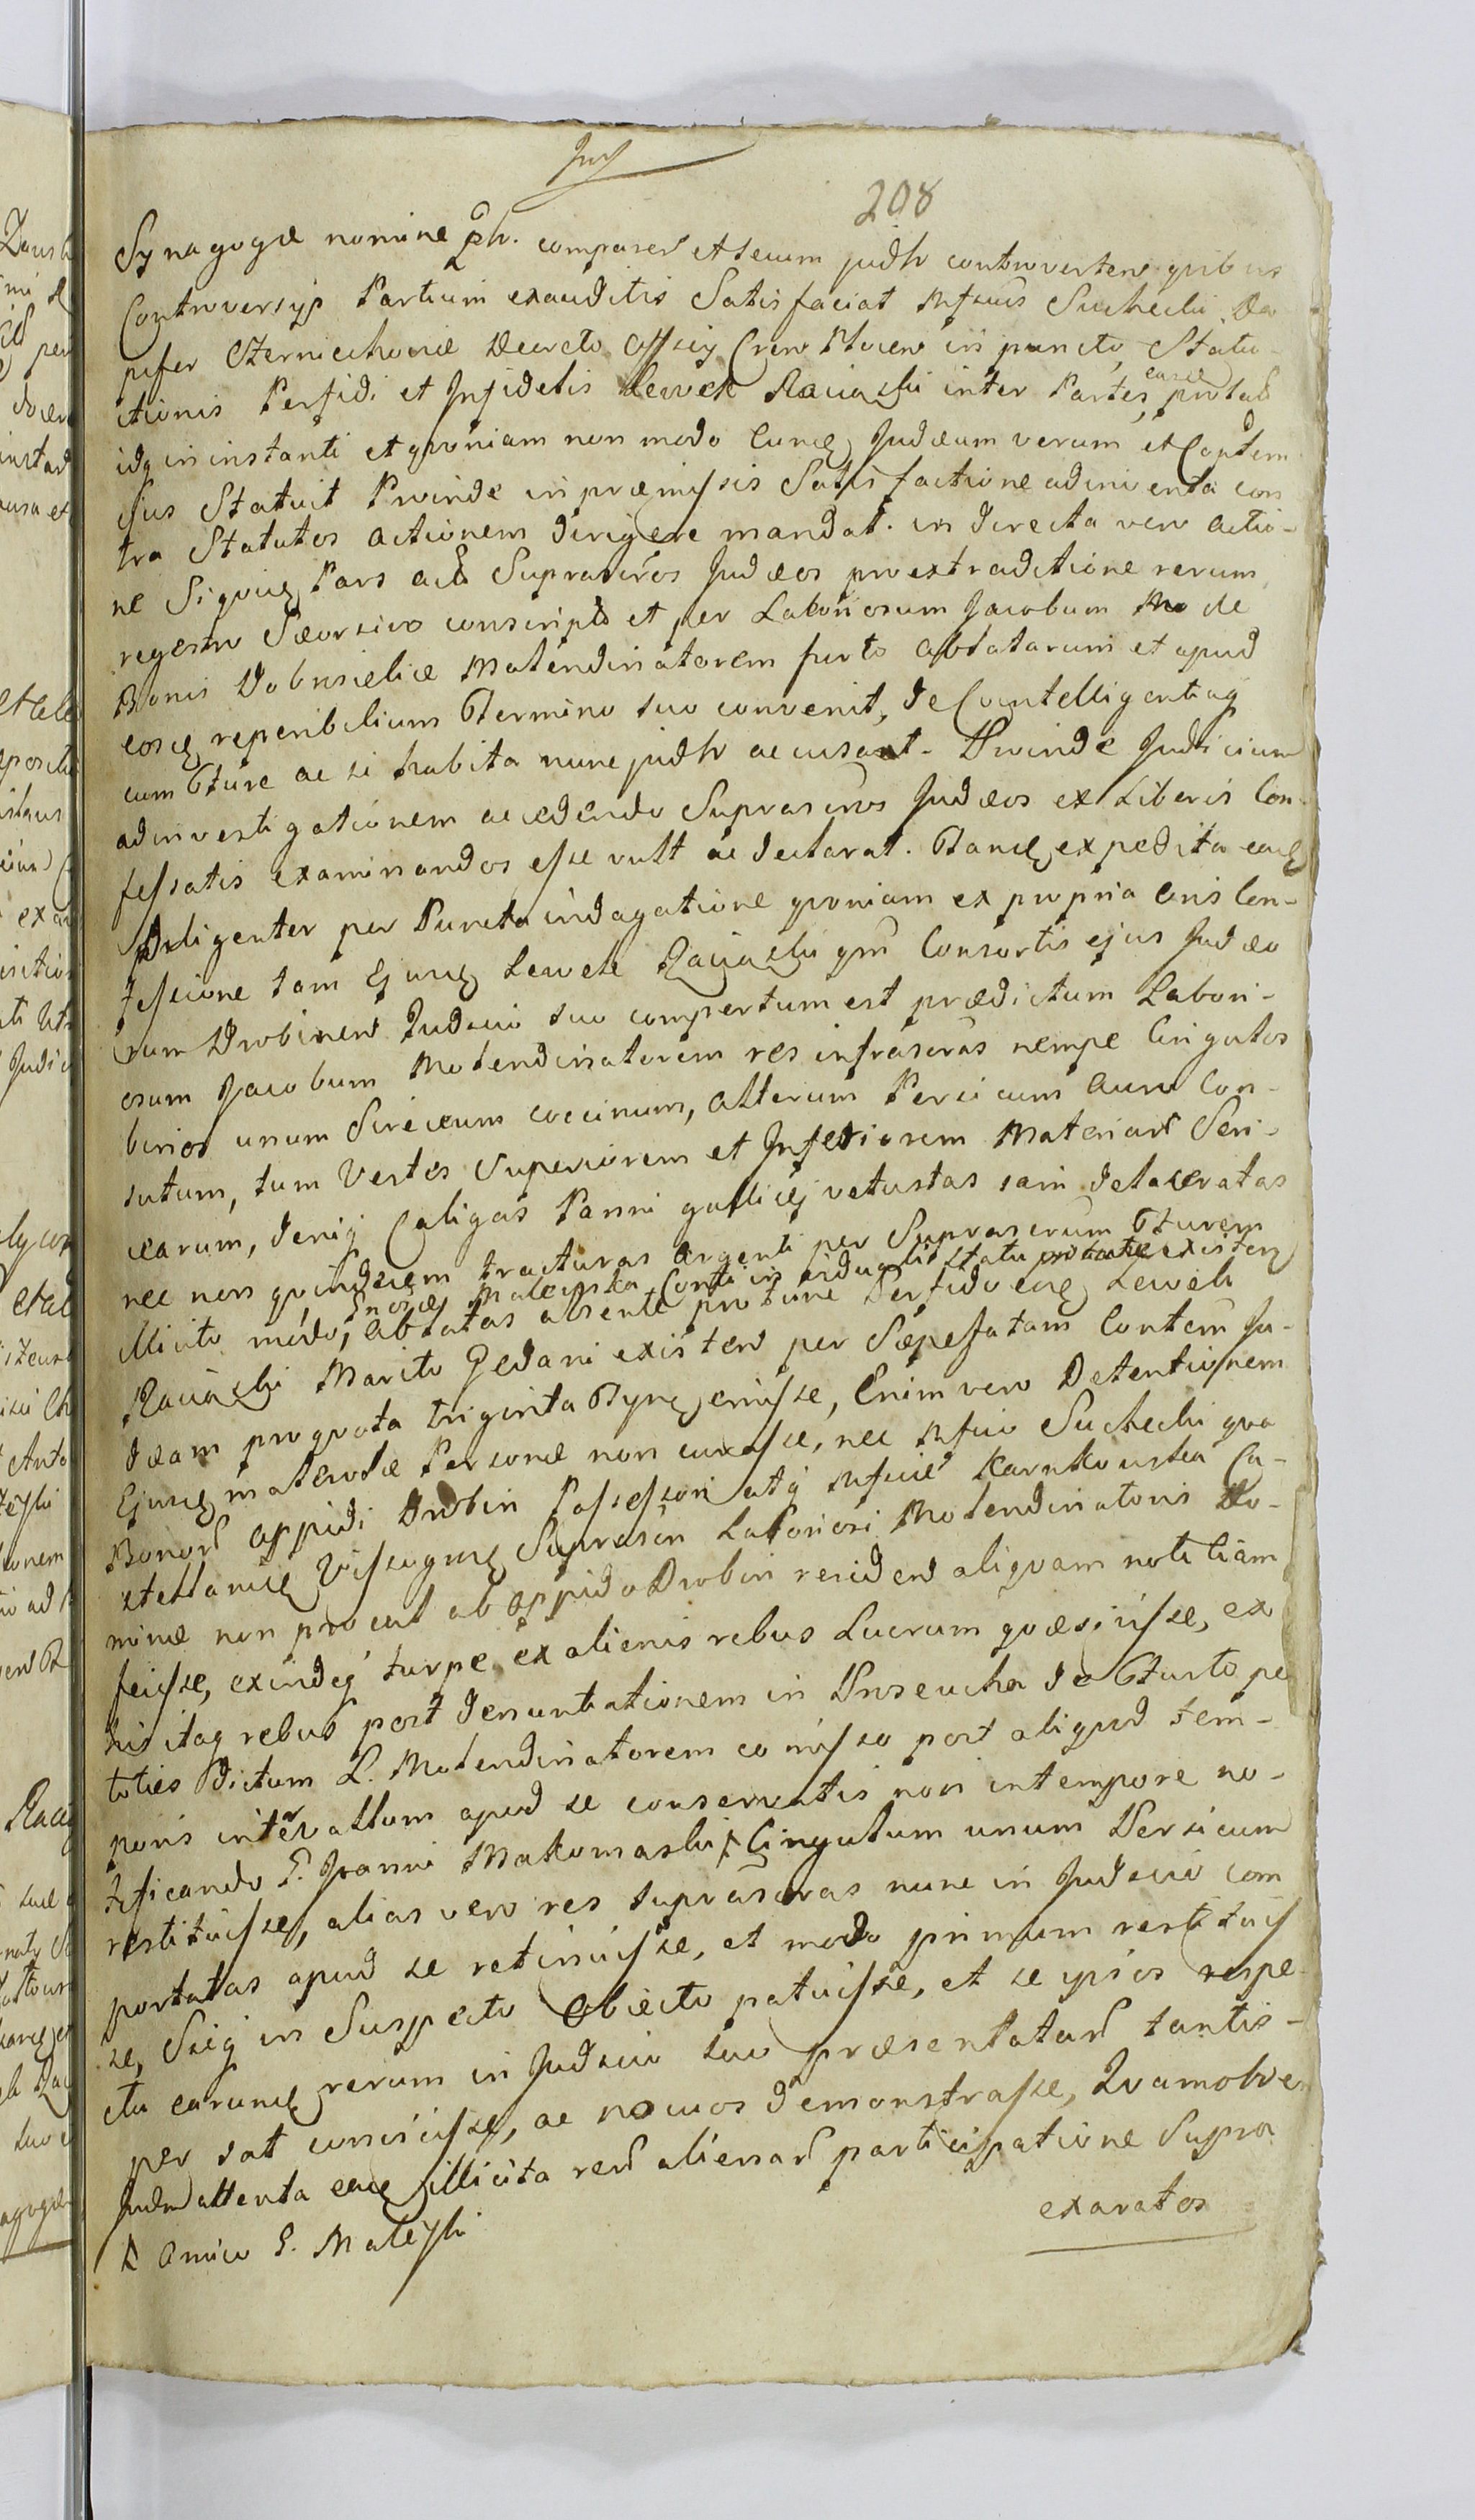 Jud
208
Synagogæ nomine ph. comparen et secum judh controverten quibus
Controversijs Partium exauditis Satisfaciat Mfcus Suchecki Da
pifer Czerniechoviæ Decreto Officij Cren Plocen in puncto Statu-
itionis Perfidi et Infidelis Lewek Raciaski inter Partes easce prolat
idq in instanti et qvoniam non modo Eunce Judæum verum et Contem
ejus Statuit Proinde in præmissis Satisfactione adinventa con
tra Statutos Actionem dirigere mandat. in directa vero Actio-
ne Siqvice Pars act Suprascros Judæos pro extraditione rerum
regestro Seorsivo conscript et per Laboriosum Jacobum de
Bonis Dobrosielice Molendinatorem furto ablatarum et apud
eosce reperibilium Termino suo convenit, de Cointelligentiaq
cum Fure ac si habita nunc judh accusat. Proinde Judicium
ad investigationem accedendo Suprascros Judæos ex Liberis Con-
fessatis examinandos esse vult ac declarat. Tance expedita eace
Diligenter per Puncta indagatione qvoniam ex propria Oris Con-
fessione tam Ejusce Lewek Raciaski qm Consortis ejus Judæo
rum Drobinen Judicio suo compertum est prædictum Labori-
osum Jacobum Molendinatorem res infrascras nempe Cingulos
binos unum Sericeum coccineum, alterum Persicum Auro Con-
sutum, tum Vestes Superiorem et Inferiorem Materiar Seri-
cearum, deniq Caligas Panni gallici vetustas jam delaceratas
nec non qvindecim fracturas Argenti per Suprascrum Furem
Gnosæ Malewska Conti in viduali statu existen
illicito modo, ablatas absente protunc Perfido eoce Lewek
Raciaski Marito Gedani existen per Sæpefatam Contem Ju-
dæam pro qvota triginta Tynf emisse, Enim vero Detentionem
Ejusce malevolæ Personæ non curasse, nec Mfcio Suchecki qva
Bonor Oppidi Drobin Possessori atq Mfciæ Karnkowska Ca-
stellanice Visseqvæ Suprascri Laboriosi Molendinatoris Do-
minæ non procul ab Oppido Drobin residen aliqvam notitiam
fecisse, exindeq turpe ex alienis rebus Lucrum qvæsivisse, ex
his itaq rebus post denuntiationem in Unseucha de Furto per
toties dictum L. Molendinatorem comisso post aliqvod tem-
poris intervallum apud se conservatis non in tempore no-
tificando G. Joanni Makomaski Cingulum unum Persicum
restituisse, alias vero res suprascras nunc in Judicio com
portatas apud se retinuisse, et modo primum restituis
se, Sicq in Suspecto Obiecto patuisse, et se ipsos respe-
ctu earunce rerum in Judicio suo præsentatar tantis-
per sat conscivisse, ac nocuos demonstrasse, Qvamobrem
Judm attenta eace illicita rer alienar participatione Supra
exaratos
D Amico G. Maleski